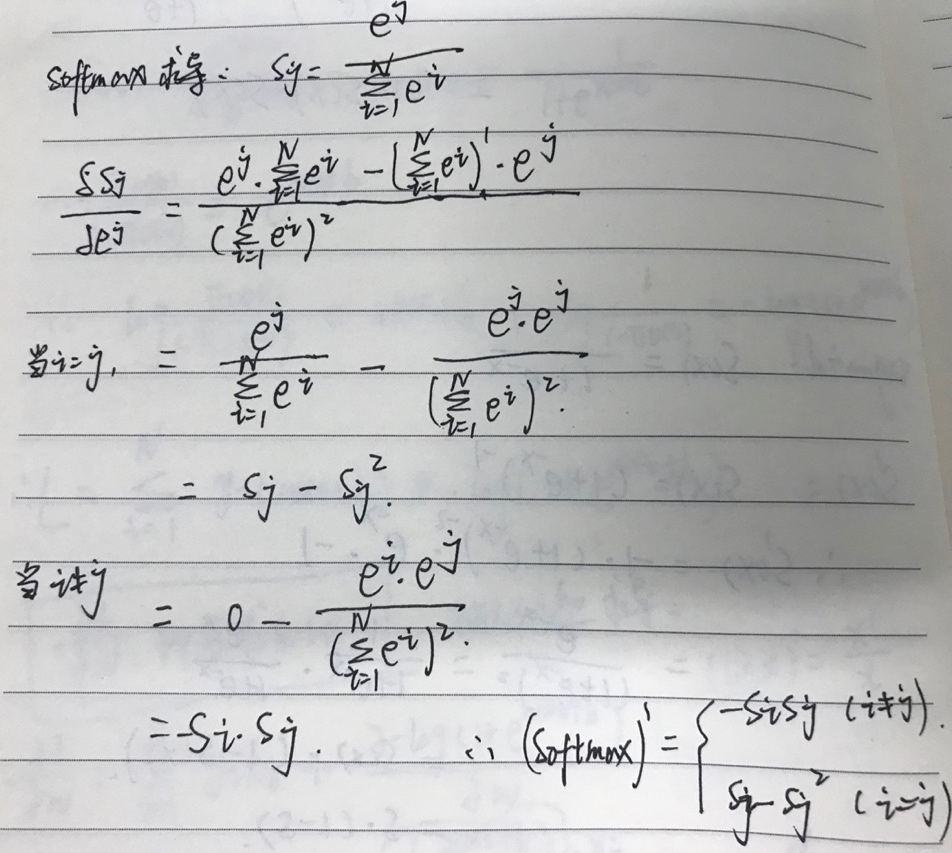 softmax 求导: Sj = e^j / Σ_{i=1}^{N} e^i
δSj / δe^j = (e^j · Σ_{i=1}^{N} e^i - (Σ_{i=1}^{N} e^i)' · e^j) / (Σ_{i=1}^{N} e^i)^2
当 i=j, = e^j / Σ_{i=1}^{N} e^i - e^j · e^j / (Σ_{i=1}^{N} e^i)^2.
= Sj - Sj^2.
当 i≠j = 0 - e^i · e^j / (Σ_{i=1}^{N} e^i)^2.
= -Si · Sj. ∴ (Softmax)' = { -SiSj (i≠j).
Sj - Sj^2 (i=j)